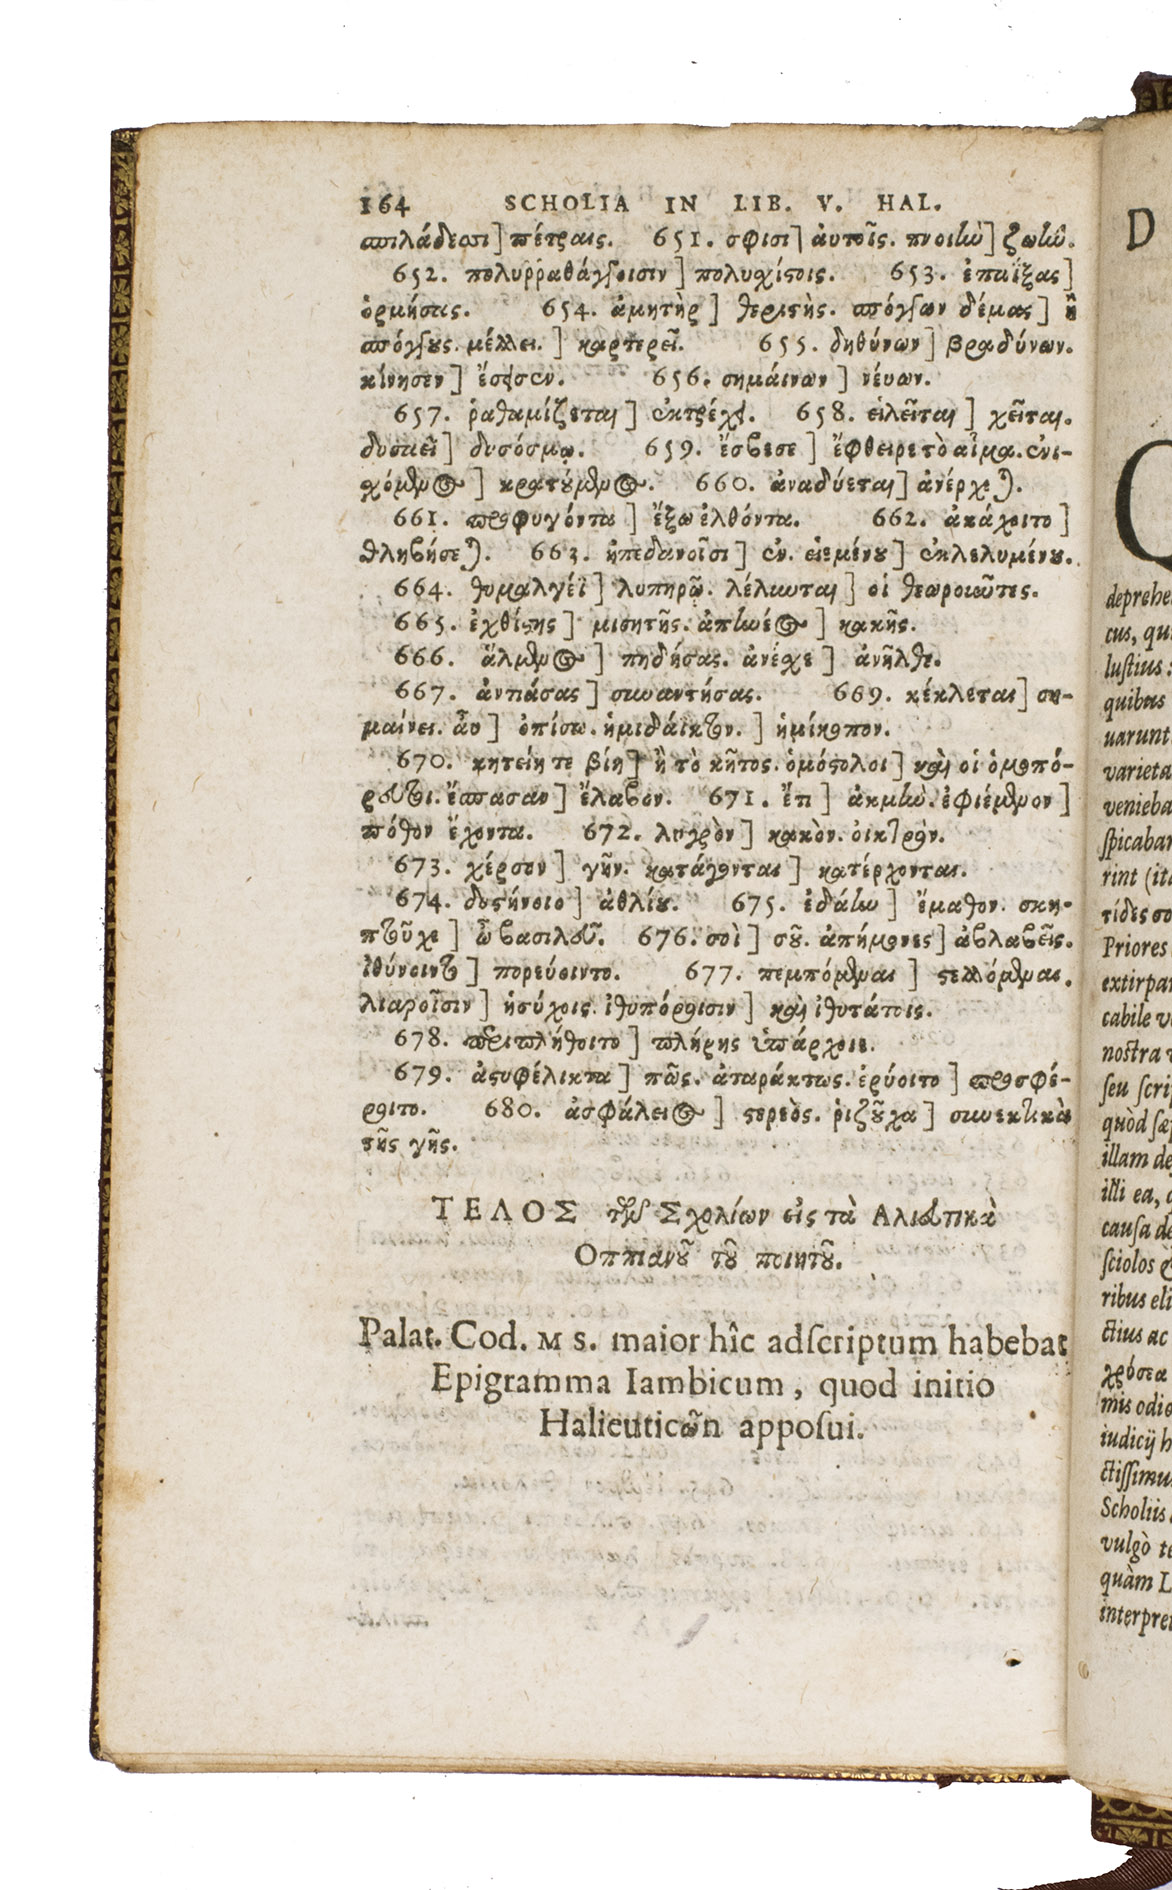 164 SCHOLIA IN LIB. V. HAL.
σπιλάδεσσι] πέτραις. 651. σφισι] αὐτοῖς. πνοιὴν] ζωήν.
652. πολυῤῥαθάγοισιν] πολυήχοις. 653. ἐπαΐξας]
ὁρμήσας. 654. ἀμητὴρ] θεριτής. σπόγγων δέμας] ἢ
σπόγγους. μέλλει.] καρτερεῖ. 655. δηθύνων] βραδύνων.
κίνησεν] ἔσεισεν. 656. σημαίνων] νέυων.
657. ῥαθαμίζεται] ἐκτρέχει. 658. εἰλεῖται] χεῖται.
δυσαεῖ] δυσόσμῳ. 659. ἔσβεσε] ἔφθειρε τὸ αἷμα. ἐνι-
σχόμενος] κρατούμενος. 660. ἀναδύεται] ἀνέρχεται.
661. προφυγόντα] ἔξω ἐλθόντα. 662. ἀκάχοιτο]
θληβήσεται. 663. ἠπεδανοῖσι] ἐν. εἱεμένου] ἐκλελυμένου.
664. θυμαλγέϊ] λυπηρῷ. λέλιωται] οἱ θεωροιῶτες.
665. ἐχθίστης] μισητῆς. ἀπηνέος] κακῆς.
666. ἅλμενος] πηδήσας. ἀνέσχε] ἀνῆλθε.
667. ἀντιάσας] συναντήσας. 669. κέκλεται] ση-
μαίνει. ἂψ] ὀπίσω. ἡμιδάϊκτον.] ἡμίκοπον.
670. κητείη τε βίη] ἢ τὸ κῆτος. ὁμόστολοι] καὶ οἱ ὁμοπό-
ρευτοι. ἔσπασαν] ἔλαβον. 671. ἔτι] ἀκμὴν. ἐφιέμενον]
πόθον ἔχοντα. 672. λυγρὸν] κακὸν. οἰκτρὸν.
673. χέρσον] γῆν. κατάγονται] κατέρχονται.
674. δυστήνοιο] ἀθλίου. 675. ἐδάην] ἔμαθον. σκη-
πτοῦχε] ὦ βασιλεῦ. 676. σοὶ] σοῦ. ἀπήμονες] ἀβλαβεῖς.
ἰθύνοιντο] πορεύοιντο. 677. πεμπόμεναι] στελλόμεναι.
λιαροῖσιν] ἡσύχοις. ἰθυπόροισιν] καὶ ἰθυτάτοις.
678. περιπλήθοιτο] πλήρης ὑπάρχοιε.
679. ἀστυφέλικτα] πῶς. ἀταράκτως. ἐρύοιτο] προσφέ-
ροιτο. 680. ἀσφάλειος] στερεὸς. ῥιζοῦχα] συνεκτικὰ
τῆς γῆς.
ΤΕΛΟΣ τῶν Σχολίων εἰς τὰ Αλιευτικὰ
Οππιανοῦ τοῦ ποιητοῦ.
Palat. Cod. MS. maior hîc adſcriptum habebat
Epigramma Iambicum, quod initio
Halieuticῶn appoſui.
D
Q
deprehe
cus, qu
luſtius:
quibus
uarunt
varieta
venieba
ſpicabar
rint (ita
τίδες σο
Priores
extirpar
cabile v
noſtra
ſeu ſcrip
quòd ſæ
illam de
illi ea,
cauſa de
ſciolos &
ribus eli
ctius ac
χρύσεα
mis odio
iudicij h
ctiſſimu
Scholiis
vulgò te
quàm L
interpret